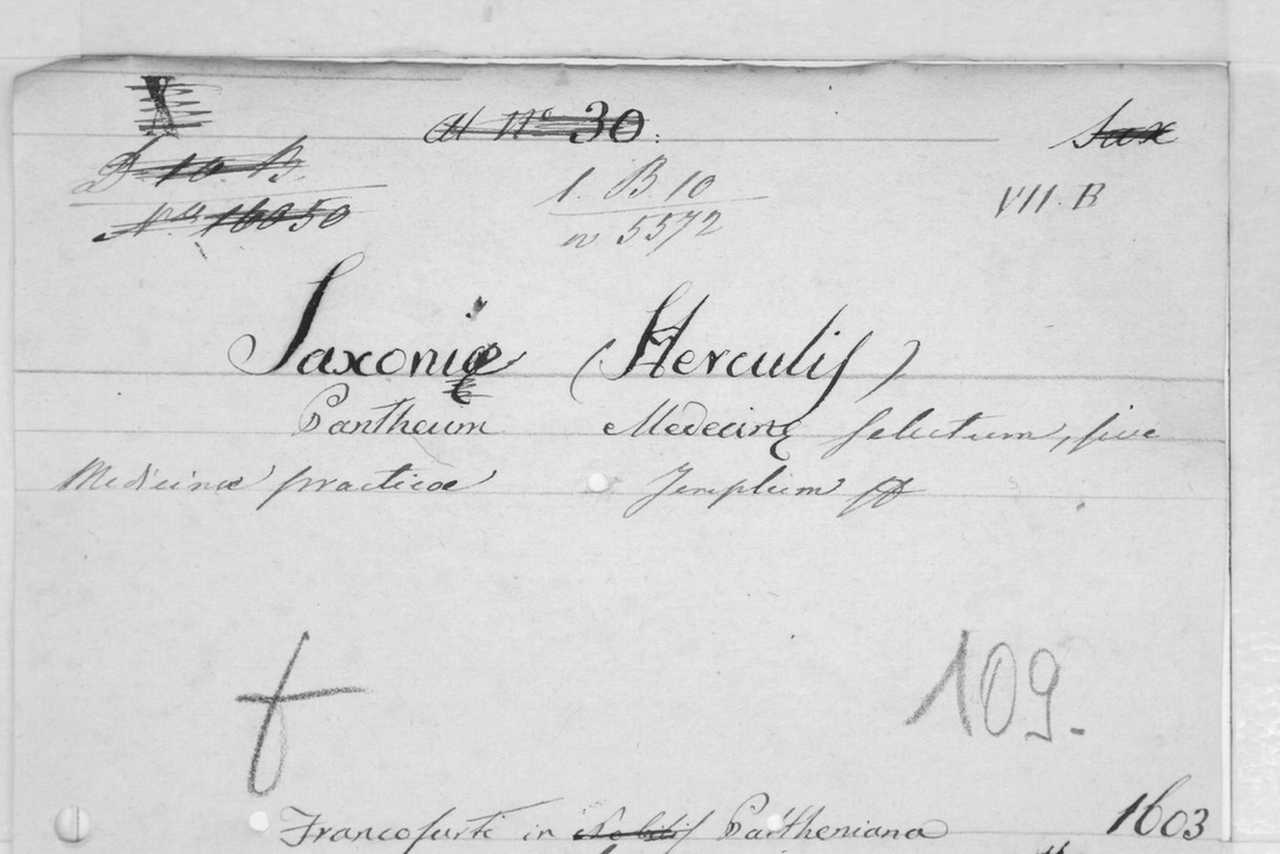 X
ad No 30.
Sax
D 10. B.
1. B. 10
VII. B
No. 16050
n 5572
Saxoniæ (Herculis)
Pantheum Medecinę selectum, sive
Medicinæ practicæ Templum
109.
Francofurti in Nobilis Partheniana 1603